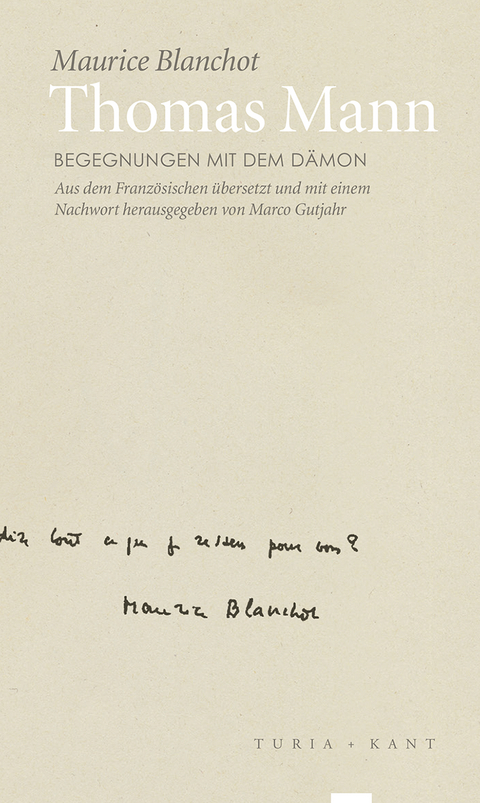 Maurice Blanchot
Thomas Mann
BEGEGNUNGEN MIT DEM DÄMON
Aus dem Französischen übersetzt und mit einem
Nachwort herausgegeben von Marco Gutjahr
dire tout ce que je ressens pour vous?
Maurice Blanchot
TURIA + KANT